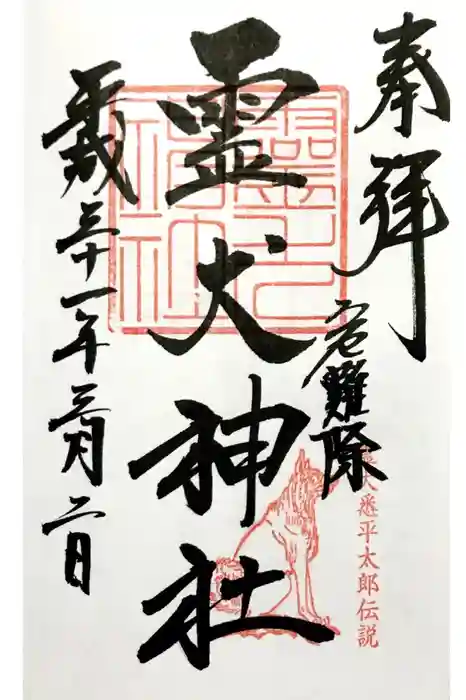 奉拝
危難除
霊犬悉平太郎伝説
霊犬神社
平成三十一年三月二日